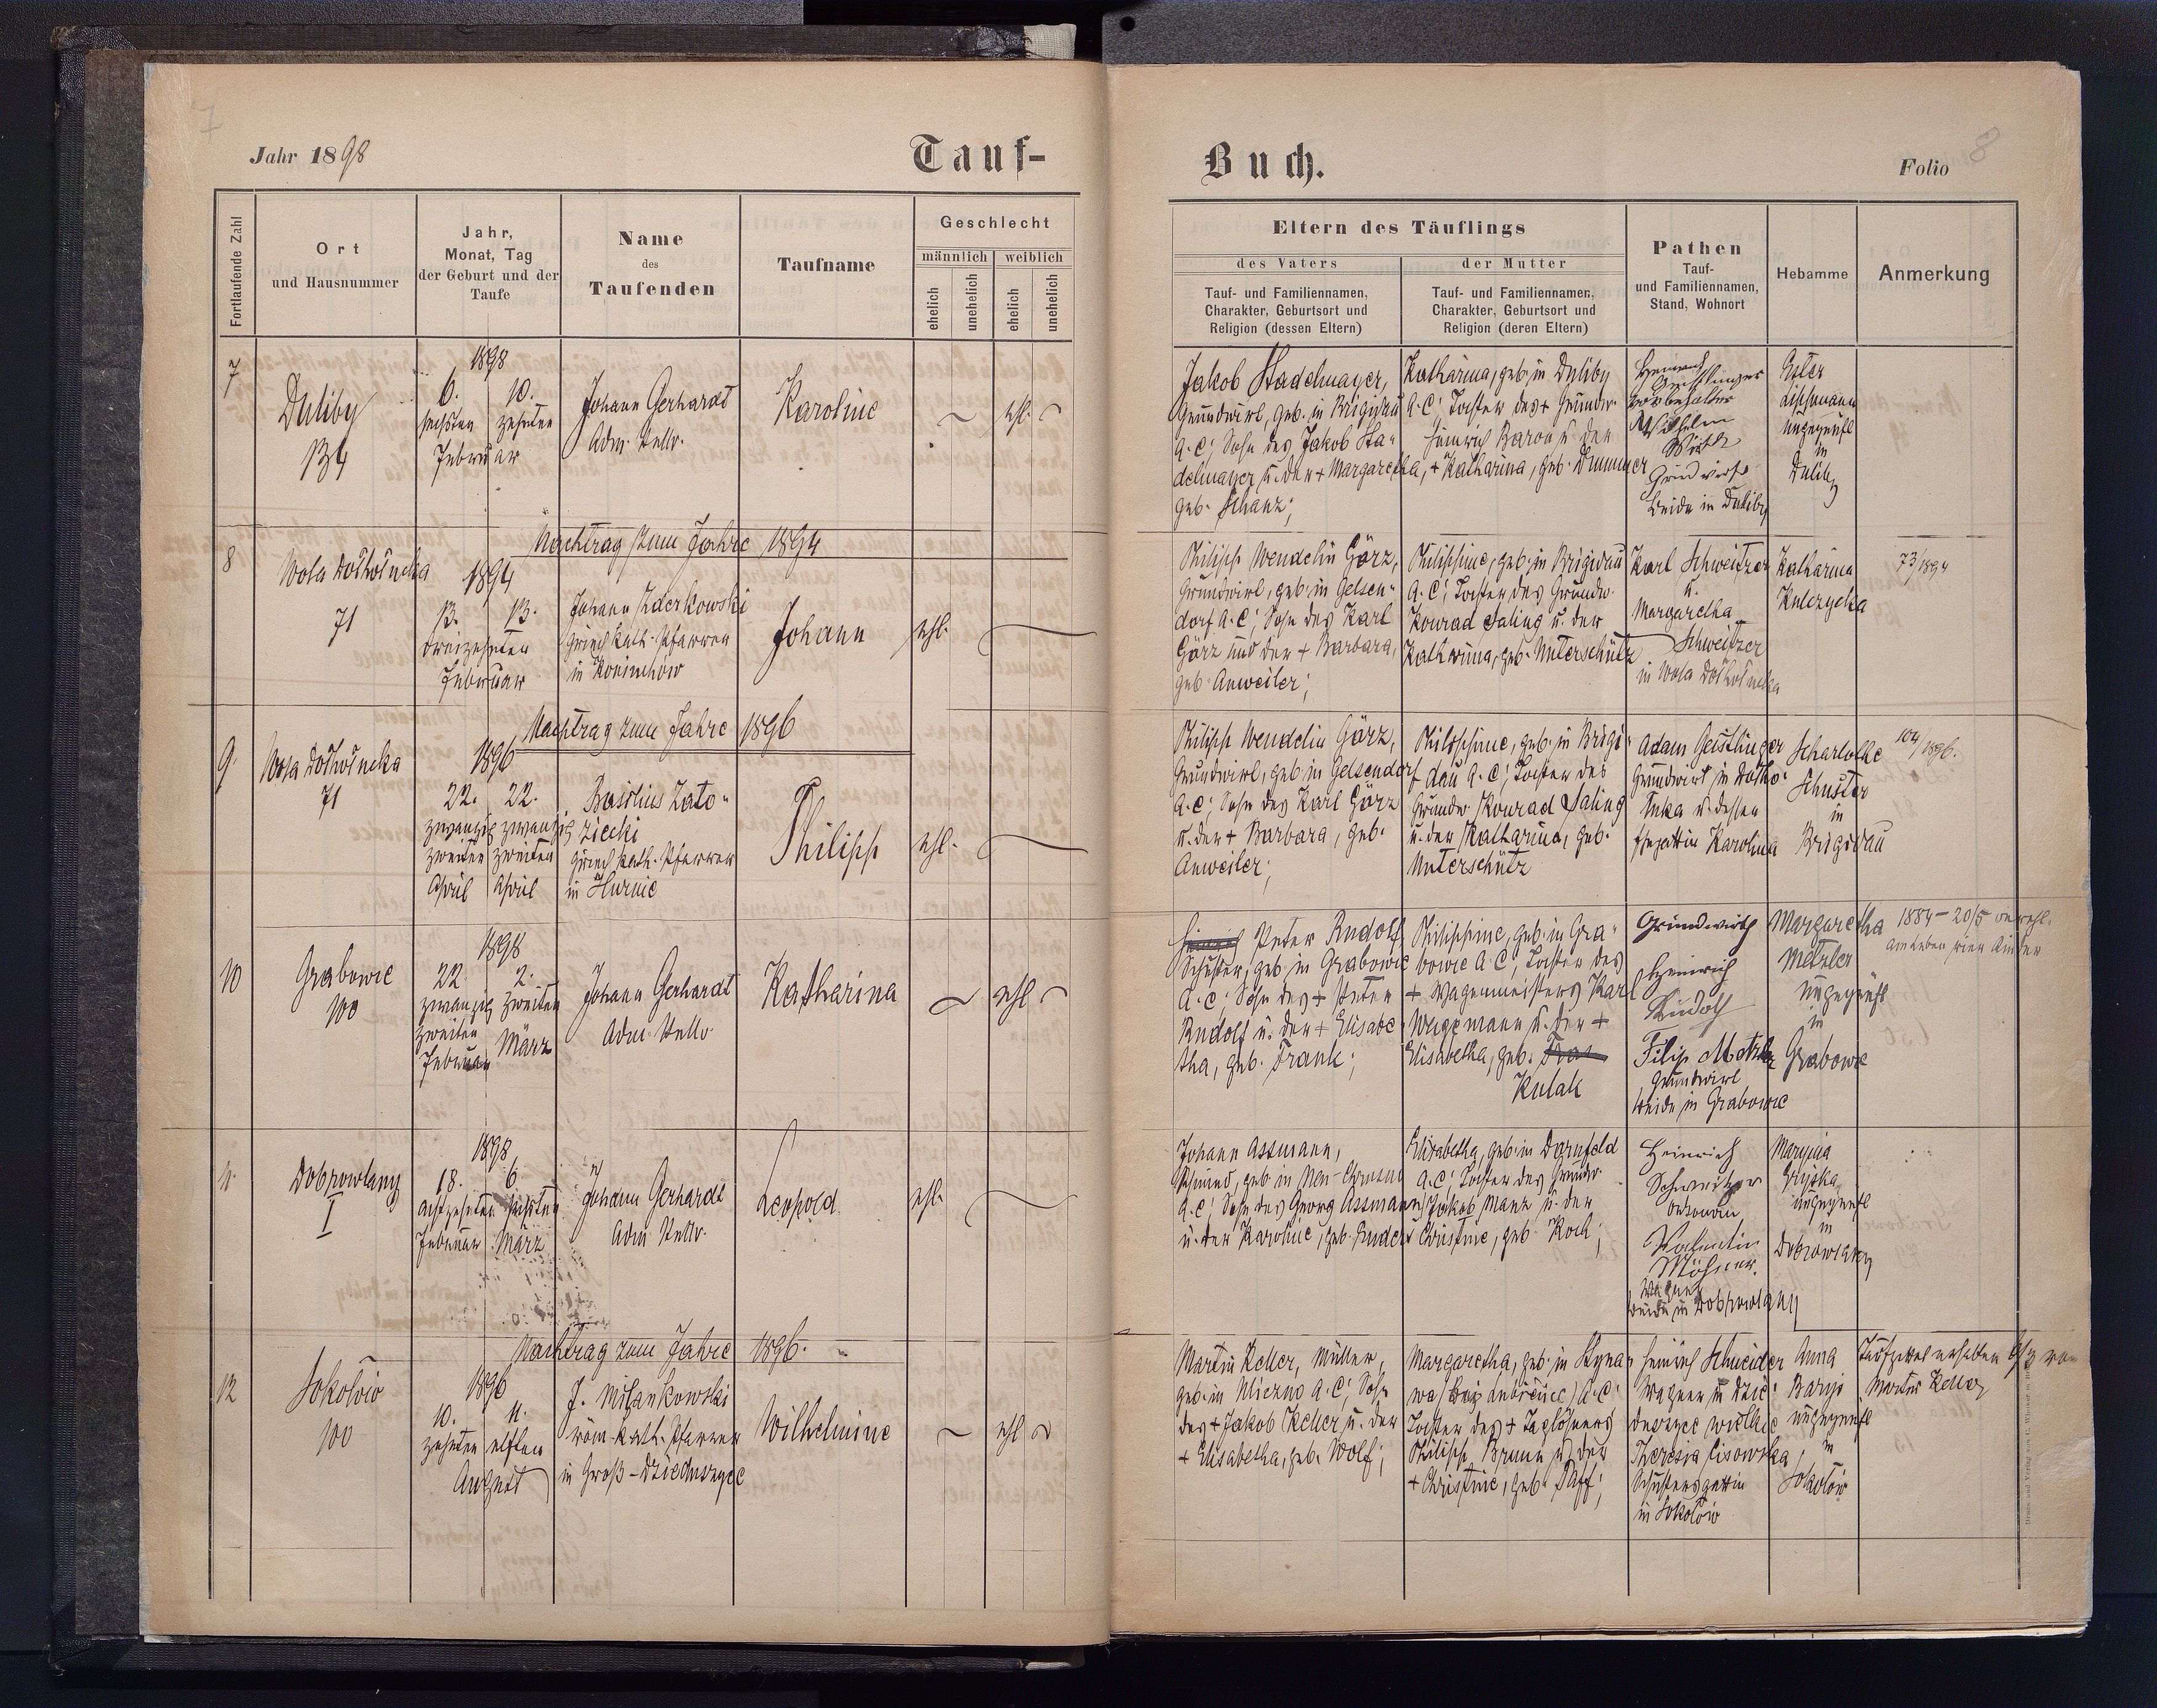 7
Jahr 1898
Tauf-
Fortlaufende Zahl
Ort
und Hausnummer
Jahr,
Monat, Tag
der Geburt und der
Taufe
Name
des
Taufenden
Taufname
Geschlecht
männlich
weiblich
ehelich
unehelich
ehelich
unehelich
7
Duliby
134
1898
6. 10.
sechsten zehnten
Februar
Johann Gerhardt
Adm. Stellv.
Karoline
ehl.
Nachtrag zum Jahre 1894
8
71
1894
13. 13.
dreizehnten
Februar
Johann
griech. kath. Pfarrer
in
Johann
ehl.
Nachtrag zum Jahre 1896
9.
71
1896
22. 22.
zwanzig zwanzig
zweiten zweiten
April April
Basilius Zato-
ziecki
griech. kath. Pfarrer
in Hurnie
Philipp
ehl.
10
Grabowce
100
1898
22. 2.
zwanzig zweiten
zweiten
Februar März
Johann Gerhardt
Adm. Stellv.
Katharina
ehl.
11.
Dobrowlany
I
1898
18. 6.
achtzehnten sechsten
Februar März
Johann Gerhardt
Adm. Stellv.
Leopold
ehl.
Nachtrag zum Jahre 1896.
12
Sokolów
100
1896
10. 11.
zehnten elften
August
röm.-kath. Pfarrer
in Groß-Dzieduszyce
Wilhelmine
ehl.
Buch.
Folio 8
Eltern des Täuflings
des Vaters
Tauf- und Familiennamen,
Charakter, Geburtsort und
Religion (dessen Eltern)
der Mutter
Tauf- und Familiennamen,
Charakter, Geburtsort und
Religion (deren Eltern)
Pathen
Tauf-
und Familiennamen,
Stand, Wohnort
Hebamme
Anmerkung
Jakob Stadelmayer,
Grundwirt, geb. in Brigidau
A.C; Sohn des Jakob Sta-
delmayer u. der + Margaretha,
geb. Schanz;
Katharina, geb. in Duliby
A.C; Tochter des + Grundw.
Heinrich Baron u. der
+ Katharina, geb. Dummer
Heinrich
Wilhelm
Grundwirte
beide in Duliby
Ester
Lippmann
ungeprüft
in
Duliby
Philipp Wendelin Görz,
Grundwirt, geb. in Gelsen-
dorf A.C; Sohn des Karl
Görz und der + Barbara,
geb. Anweiler;
Philippine, geb. in Brigidau
A.C; Tochter des Grundw.
Konrad Saling u. der
Katharina, geb. Unterschütz
Karl Schweitzer
u.
Margaretha
Schweitzer
in Wola
Katharina
Kulczycka
73/1894
Philipp Wendelin Görz,
Grundwirt, geb. in Gelsendorf
A.C; Sohn des Karl Görz
u. der + Barbara, geb.
Anweiler;
Philippine, geb. in Brigi-
dau A.C; Tochter des
Grundw. Konrad Saling
u. der Katharina, geb.
Unterschütz
Adam Geistlinger
Grundwirt in
u. dessen
Ehegattin Karolina
Scharlotte
Schuster
in
Brigidau
104/1896.
Peter Rudolf
Schuster, geb. in Grabowce
A.C; Sohn des + Peter
Rudolf u. der + Elisabe-
tha, geb. Frank;
Philippine, geb. in Gra-
bowce A.C; Tochter des
+ Wagenmeisters Karl
u. der +
Elisabetha, geb.
Kulak
Grundwirth
Heinrich
Rudolf
Filip Metzler
Grundwirt
beide in Grabowce
Margaretha
Metzler
ungeprüft
in
Grabowce
1884 - 20/5
am Leben vier Kinder
Johann Assmann,
Schmied, geb. in
A.C; Sohn des Georg Assmann
u. der Karoline, geb. Enders
Elisabetha, geb. in Dornfeld
A.C; Tochter des Grundw.
Jakob Manz u. der
Christine, geb. Koch;
Heinrich
Schweitzer
Valentin
Mösner.
Wagner
beide in Dobrowlany
Maryina
ungeprüft
in
Dobrowlany
Martin Keller, Müller,
geb. in Mierzno A.C; Sohn
des + Jakob Keller u. der
+ Elisabetha, geb. Wolf;
Margaretha, geb. in
A.C.
Tochter des + Taglöhners
Philipp Brunn u. der
+ Christine, geb. Paff;
Heinrich Schneider
Wagner in Dzie-
duszyce wielkie
Theresia Lisowska,
Schustersgattin
in Sokolów
Anna
ungeprüft
in
Sokolów
Martin Keller